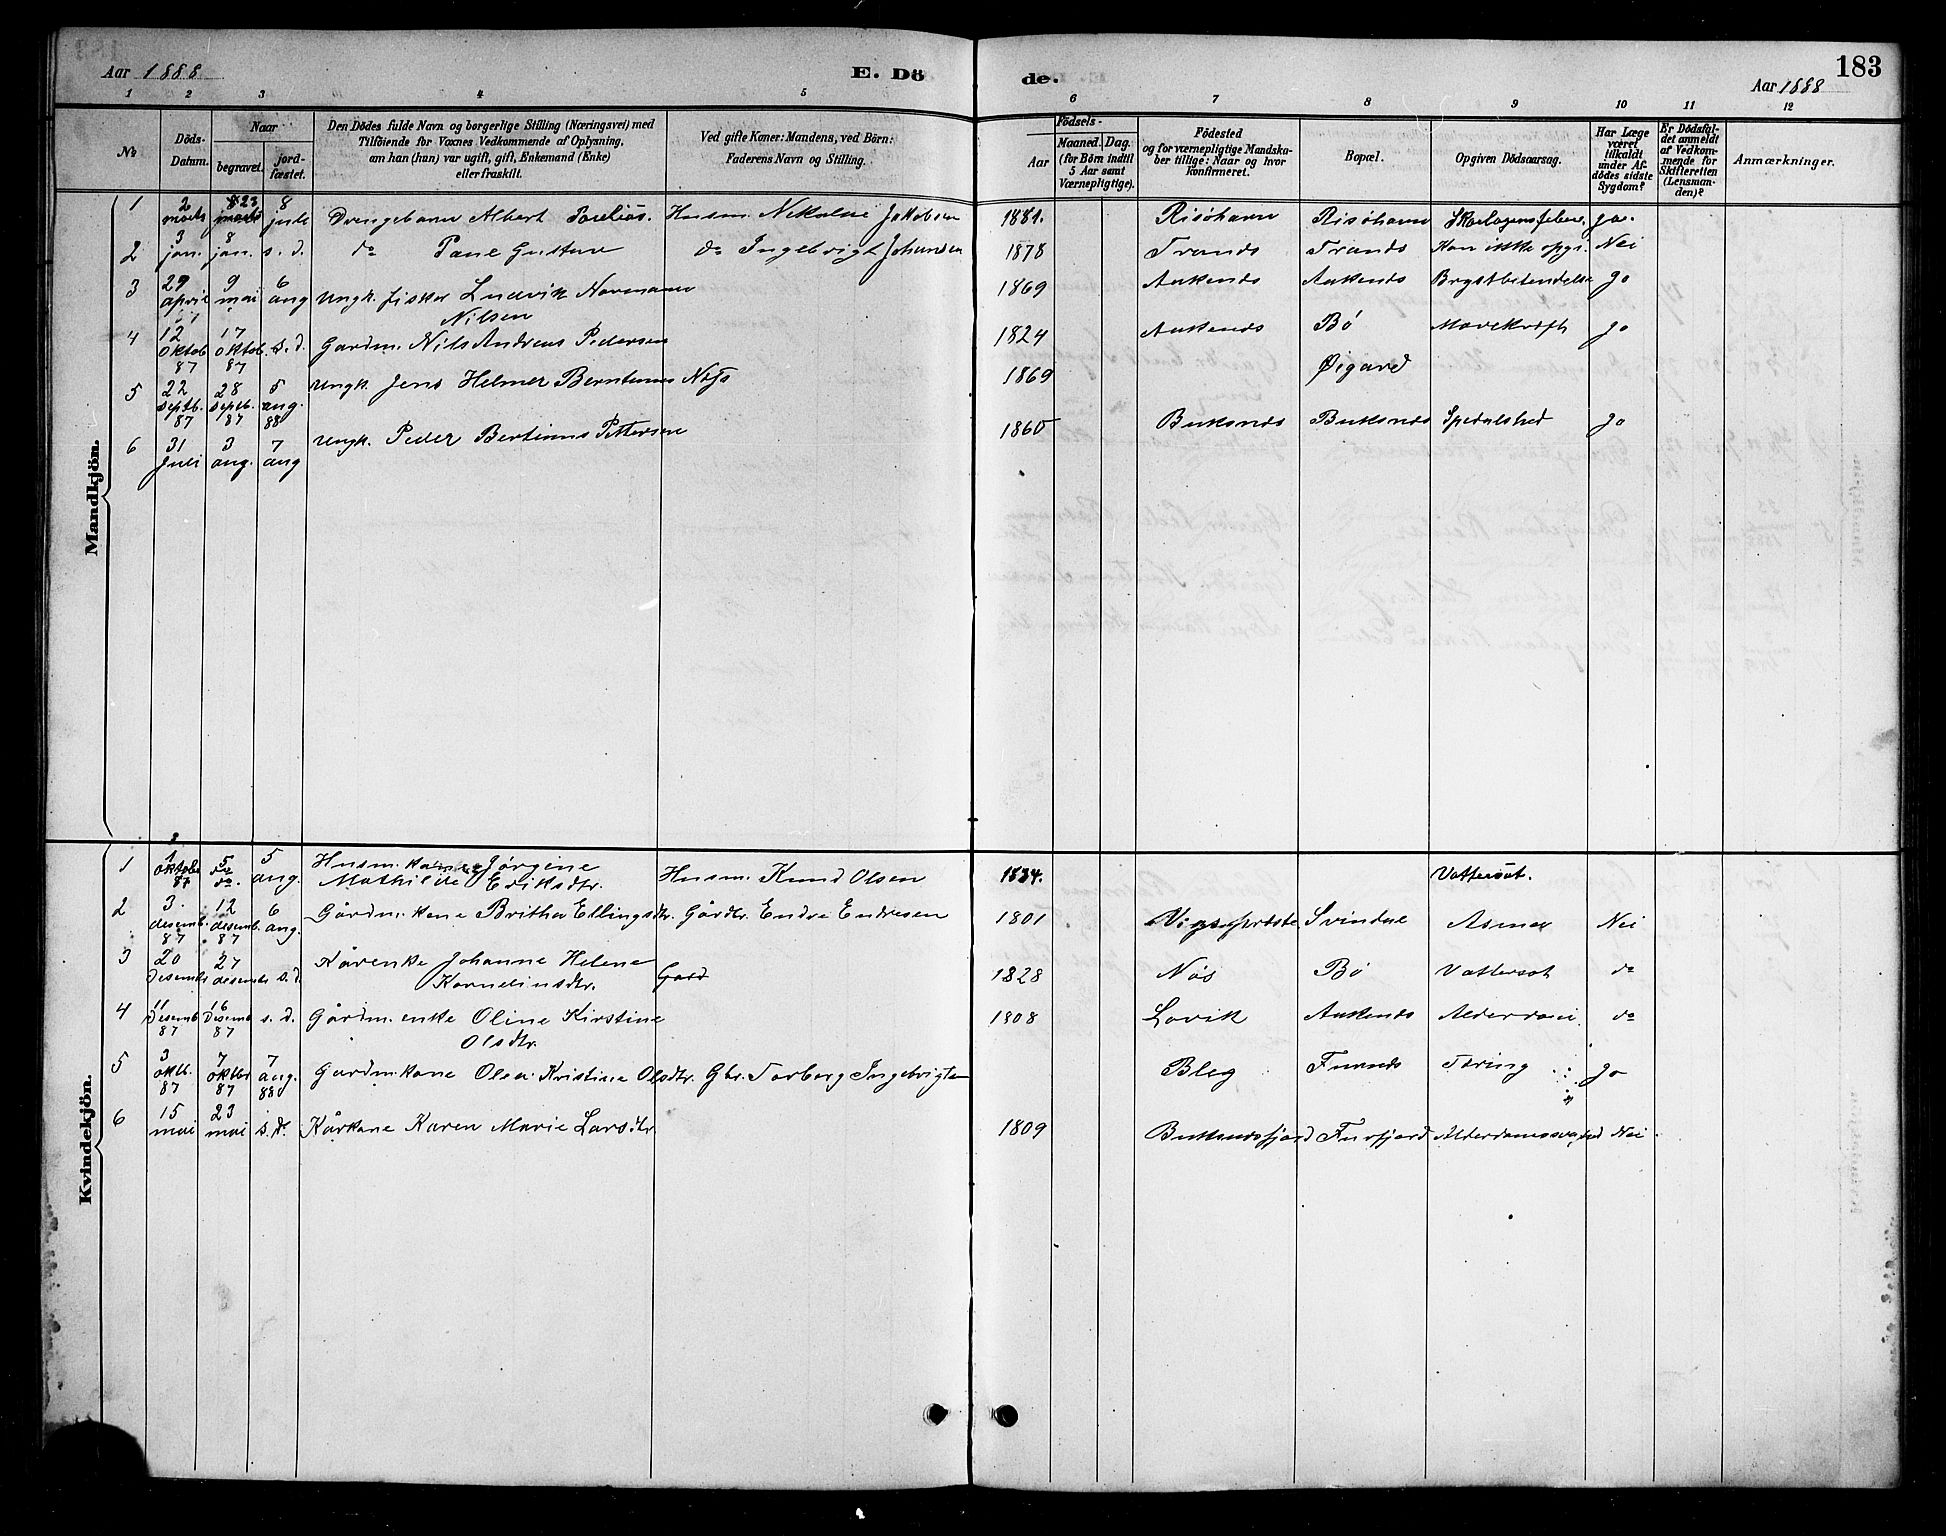 Aar 1888
E. Dö
de.
Aar 1888
183
1 2 3 4 5 6 7 8 9 10 11 12
No
Döds-
Datum.
Naar
begravet.
jord-
fæstet.
Den Dödes fulde Navn og borgerlige Stilling (Næringsvei) med
Tilföiende for Voxnes Vedkommende af Oplysning,
om han (hun) var ugift, gift, Enkemand (Enke)
eller fraskilt.
Ved gifte Koner: Mandens, ved Börn:
Faderens Navn og Stilling.
Födsels-
Aar
Maaned. Dag.
(for Börn indtil
5 Aar samt
Værnepligtige).
Födested
og for værnepligtige Mandska-
ber tillige: Naar og hvor
konfirmeret.
Bopæl.
Opgiven Dödsaarsag.
Har Læge
været
tilkaldt
under Af-
dödes sidste
Sygdom?
Er Dödsfal-
det anmeldt
af Vedkom-
mende for
Skifteretten
(Lensman-
den)?
Anmærkninger.
Mandkjön.
1 2 marts 23 8 juli Drengebarn Albert Husm. Nikolai Jakobsen 1881. Risöhavn Risöhavn Skarlagensfeber ja.
2 3 jan. 8 jan. s. d. do Gustav do Ingebrigt Johansen 1878 Trands Trands Kan ikke opgi. Nei
3 29 april 9 mai 6 aug Ungk. fisker Ludvik Normann 1869 Aakends Aakends Brystbetendelse Jo
Nilsen
4 12 oktob. 87 17 oktob. 87 s. d. Gardm. Nils Andreas Pedersen 1824 Aakends Bö Mavekreft Jo
5 22 septb. 87 28 septb. 87 5 aug. 88 Ungk. Jens Helmer Berntinus Nöis 1869 Øigard
6 31 Juli 3 aug. 7 aug Ungk. Peder Bertinus Pettersen 1860 Buksnes Buksnes Spedalshed Jo
Kvindekjön.
1 1 oktober 87 5 do. 5 aug. Husm. kone Jörgine
Mathilde Eriksdtr. Husm. Knud Olsen 1834. Vattersot.
2 3. desemb. 87 12 desemb. 87 6 aug. Gårdm. kone Britha Ellingsdtr. Gårdbr. Endre Endresen 1801 Svindal Nei
3 20 Desemb 27 desemb s. d. Kårenke Johanne Helene
Kornelinsdtr. Gard 1828 Nös Bö Vattersot do
4 11 Desemb 87 16 Desemb 87 s. d. Gårdm. enke Oline Kirstine 1808 Lovik Aakends Alderdom. do
Olsdtr.
5 3 oktb. 87 7 oktbr 87 7 aug. 88 Gardm. kone Olsa Kristine Olsdtr. Gbr. Torberg Ingebrigts Bleg Tæring Jo
6 15 mai 23 mai s. d. Kårkone Karen Marie Larsdtr. 1809 Buksnesfjord Furfjord Alderdomssvaghed Nei